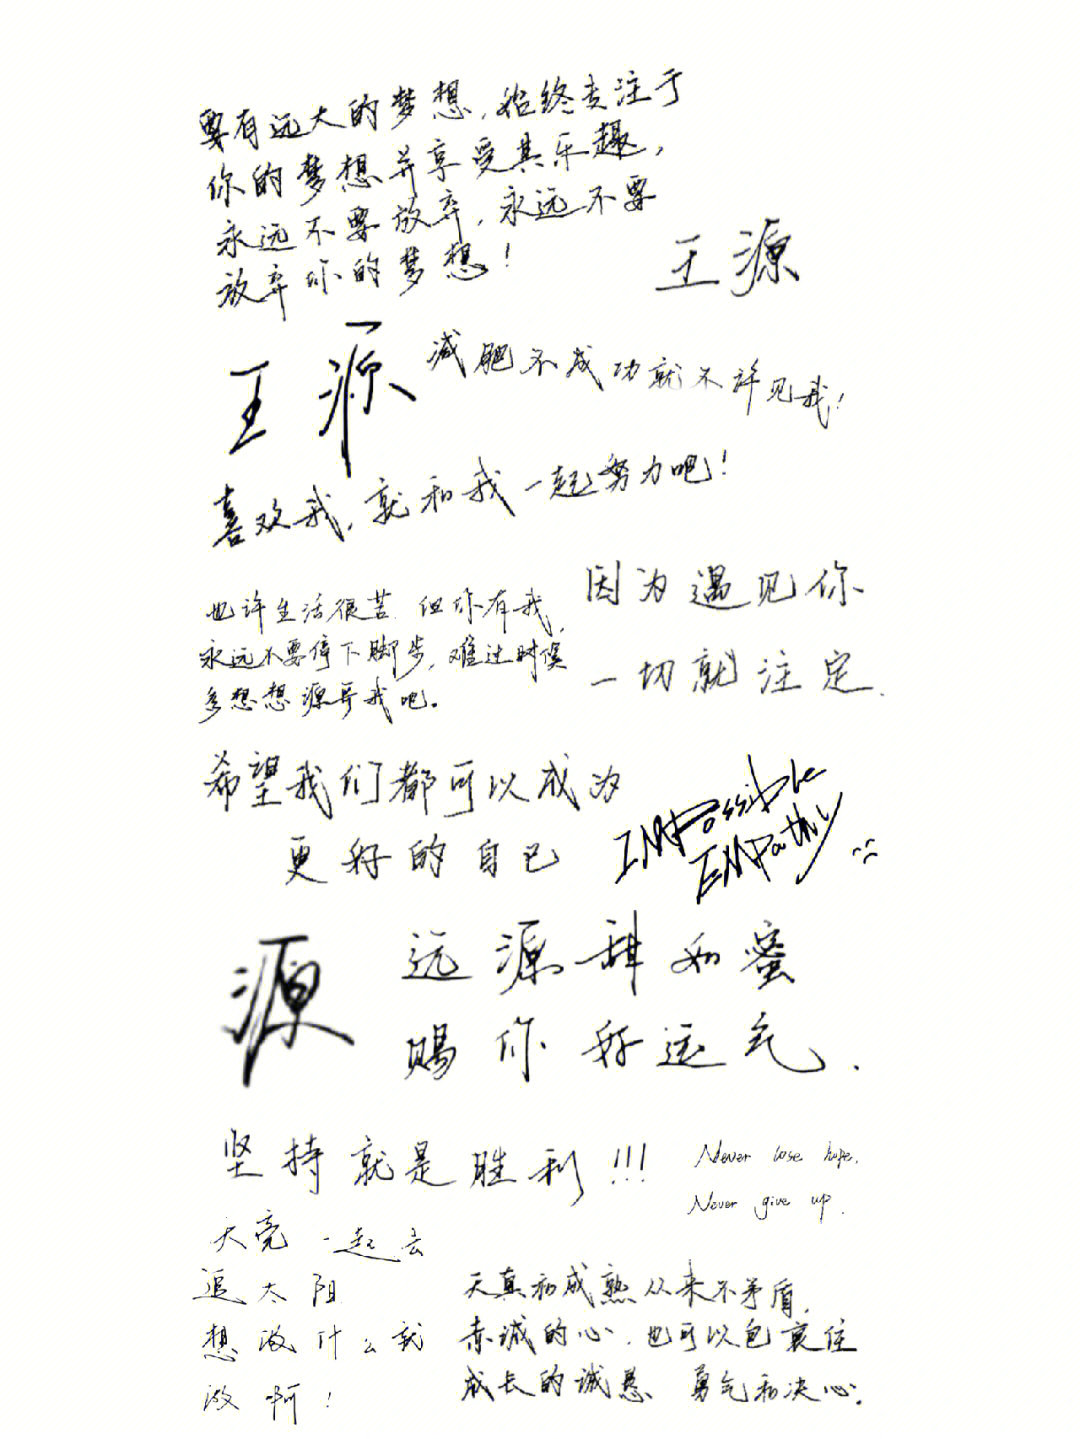 要有远大的梦想，始终专注于
你的梦想并享受其乐趣，
永远不要放弃，永远不要
放弃你的梦想！
王源
王源
减肥不成功就不许见我！
喜欢我，就和我一起努力吧！
也许生活很苦 但你有我，
永远不要停下脚步，难过时候
多想想源哥我吧。
因为遇见你
一切就注定.
希望我们都可以成为
更好的自己
IMPossible
EMPathy
源
远源甜如蜜
赐你好运气.
坚持就是胜利!!!
Never lose hope.
Never give up.
天亮一起去
追太阳
想做什么就
做啊！
天真和成熟从来不矛盾，
赤诚的心，也可以包裹住
成长的诚恳 勇气和决心.